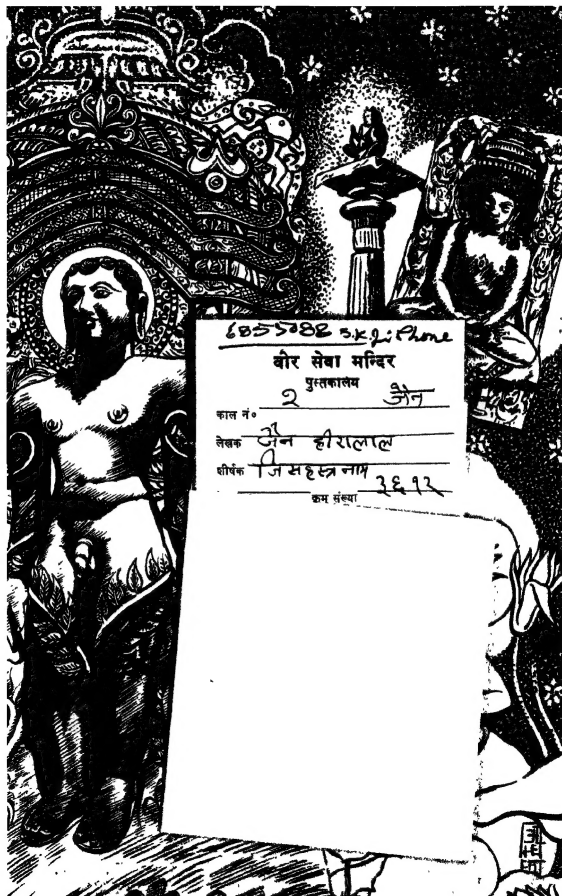 6855088 S.K. Ji Phone
वीर सेवा मन्दिर
पुस्तकालय
काल नं० २ जैन
लेखक जैन हीरालाल
शीर्षक जिसहस्त्र नाम
क्रम संख्या ३६१२